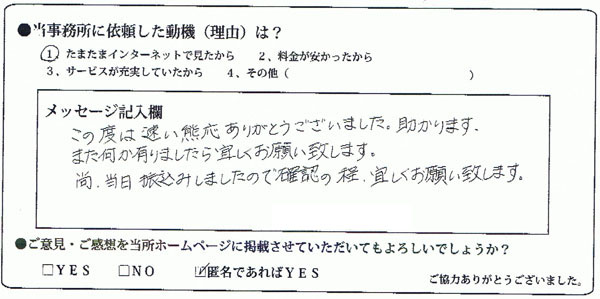 ●当事務所に依頼した動機（理由）は？
① たまたまインターネットで見たから　2、料金が安かったから
3、サービスが充実していたから　4、その他（　　　　　　　　　　）
メッセージ記入欄
この度は速い熊応ありがとうございました。助かります。
また何か有りましたら宜しくお願い致します。
尚、当日振込みしましたので確認の程、宜しくお願い致します。
●ご意見・ご感想を当所ホームページに掲載させていただいてもよろしいでしょうか？
□YES　□NO　☑匿名であればYES
ご協力ありがとうございました。